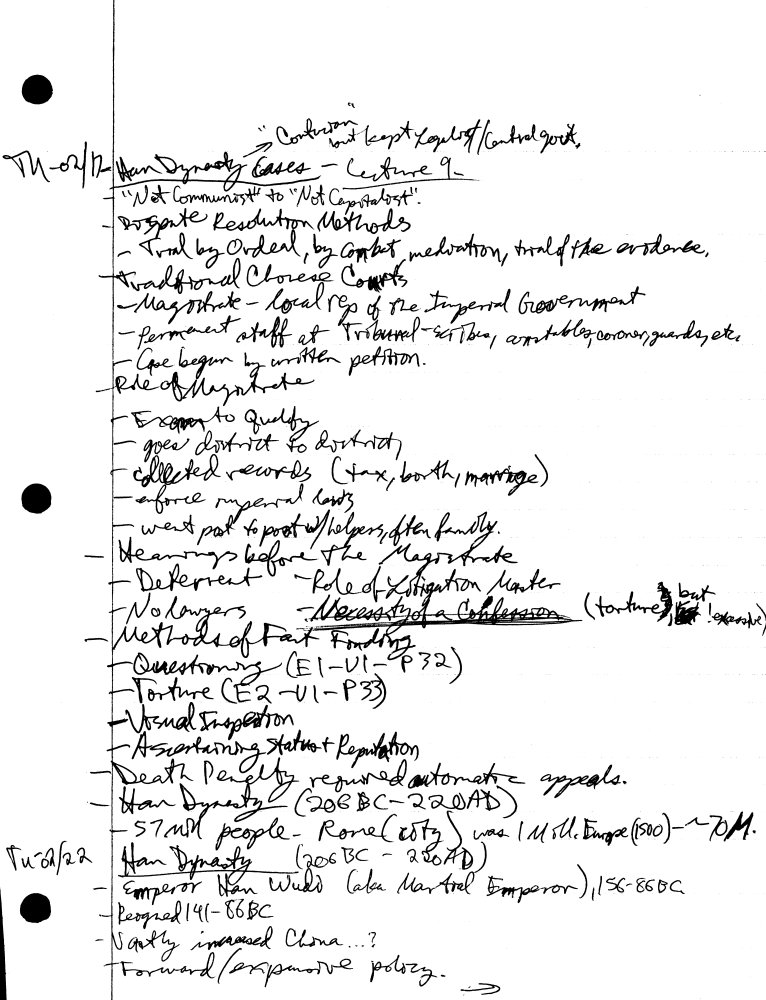 "Confucian"
but kept Legalist/Central govt.
TH-02/17 Han Dynasty Cases - Lecture 9
- "Not Communist" to "Not Capitalist".
- Dispute Resolution Methods
- Trial by Ordeal, by combat, mediation, trial of the evidence.
- Traditional Chinese Courts
- Magistrate - local rep of the Imperial Government
- Permanent staff at Tribunal - scribes, constables, coroner, guards, etc.
- Case begun by written petition.
- Role of Magistrate
- Exam to Qualify
- goes district to district,
- collected records (tax, birth, marriage)
- enforce imperial laws
- went post to post w/helpers, often family.
- Hearings before the Magistrate
- Deterrent - Role of Litigation Master
- No lawyers - Necessity of a Confession (torture), but ! excessive)
- Methods of Fact Finding
- Questioning (E1-V1-P32)
- Torture (E2-V1-P33)
- Visual Inspection
- Ascertaining Status + Reputation
- Death Penalty required automatic appeals.
- Han Dynasty (206BC-220AD)
- 57 mill people - Rome (city) was 1 Mill. Europe (1500) - ~70M.
Tu-02/22 Han Dynasty (206BC - 220AD)
- Emperor Han Wudi (aka Martial Emperor), 156-86BC
- Reigned 141-86BC
- Vastly increased China...?
- Forward/expansive policy. →